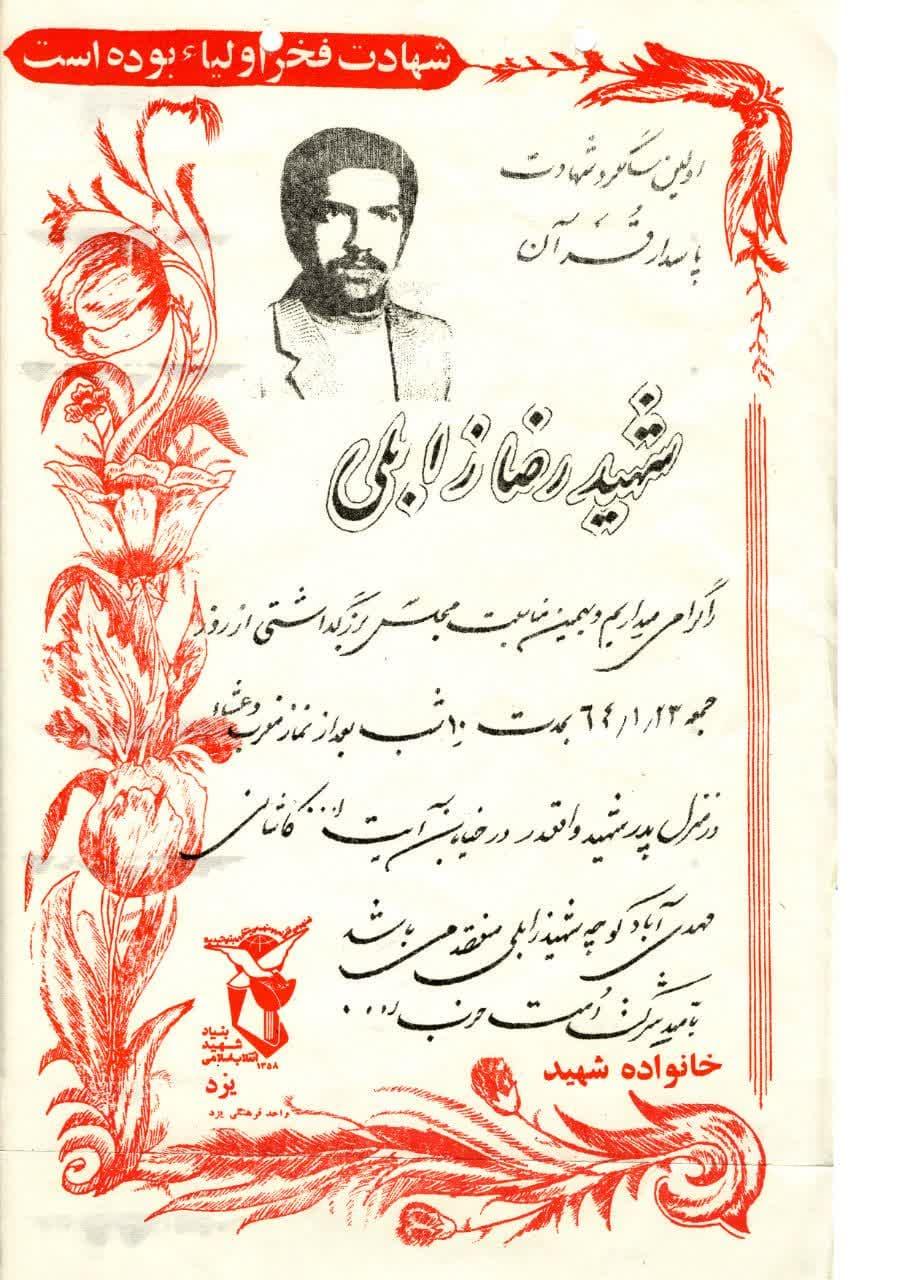 شهادت فخر اولیاء بوده است
اولین سالگرد شهادت
پاسدار قرآن
شهید رضا زابلی
را گرامی میداریم و بهمین مناسبت مجلس بزرگداشتی از روز
جمعه ۶۴/۱/۲۳ بمدت ۱۰ شب بعد از نماز مغرب و عشاء
در منزل پدر شهید واقع در خیابان آیت ا... کاشانی
مهدی آباد کوچه شهید زابلی منعقد می باشد
بامید شرکت امت حزب ا...
خانواده شهید
بنیاد
شهید
انقلاب اسلامی
۱۳۵۸
یزد
واحد فرهنگی یزد